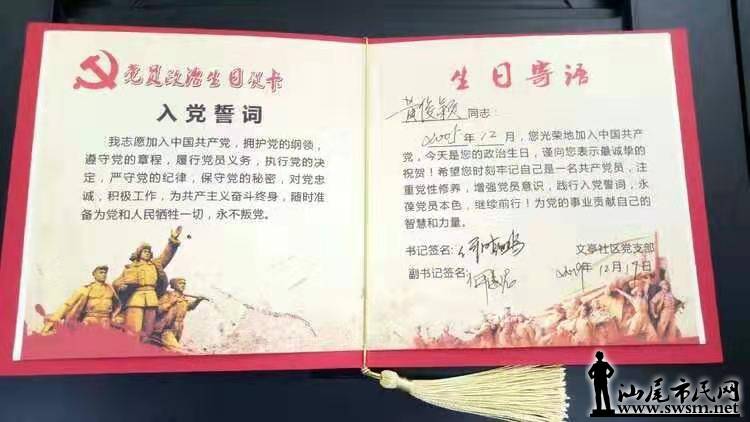 党员政治生日贺卡
入党誓词
我志愿加入中国共产党，拥护党的纲领，
遵守党的章程，履行党员义务，执行党的决
定，严守党的纪律，保守党的秘密，对党忠
诚，积极工作，为共产主义奋斗终身，随时准
备为党和人民牺牲一切，永不叛党。
生日寄语
黄俊颖同志：
2005年12月，您光荣地加入中国共产
党，今天是您的政治生日，谨向您表示最诚挚的
祝贺！希望您时刻牢记自己是一名共产党员，注
重党性修养，增强党员意识，践行入党誓词，永
葆党员本色，继续前行！为党的事业贡献自己的
智慧和力量。
书记签名：
文亭社区党支部
副书记签名：
2019年12月19日
汕尾市民网
www.swsm.net